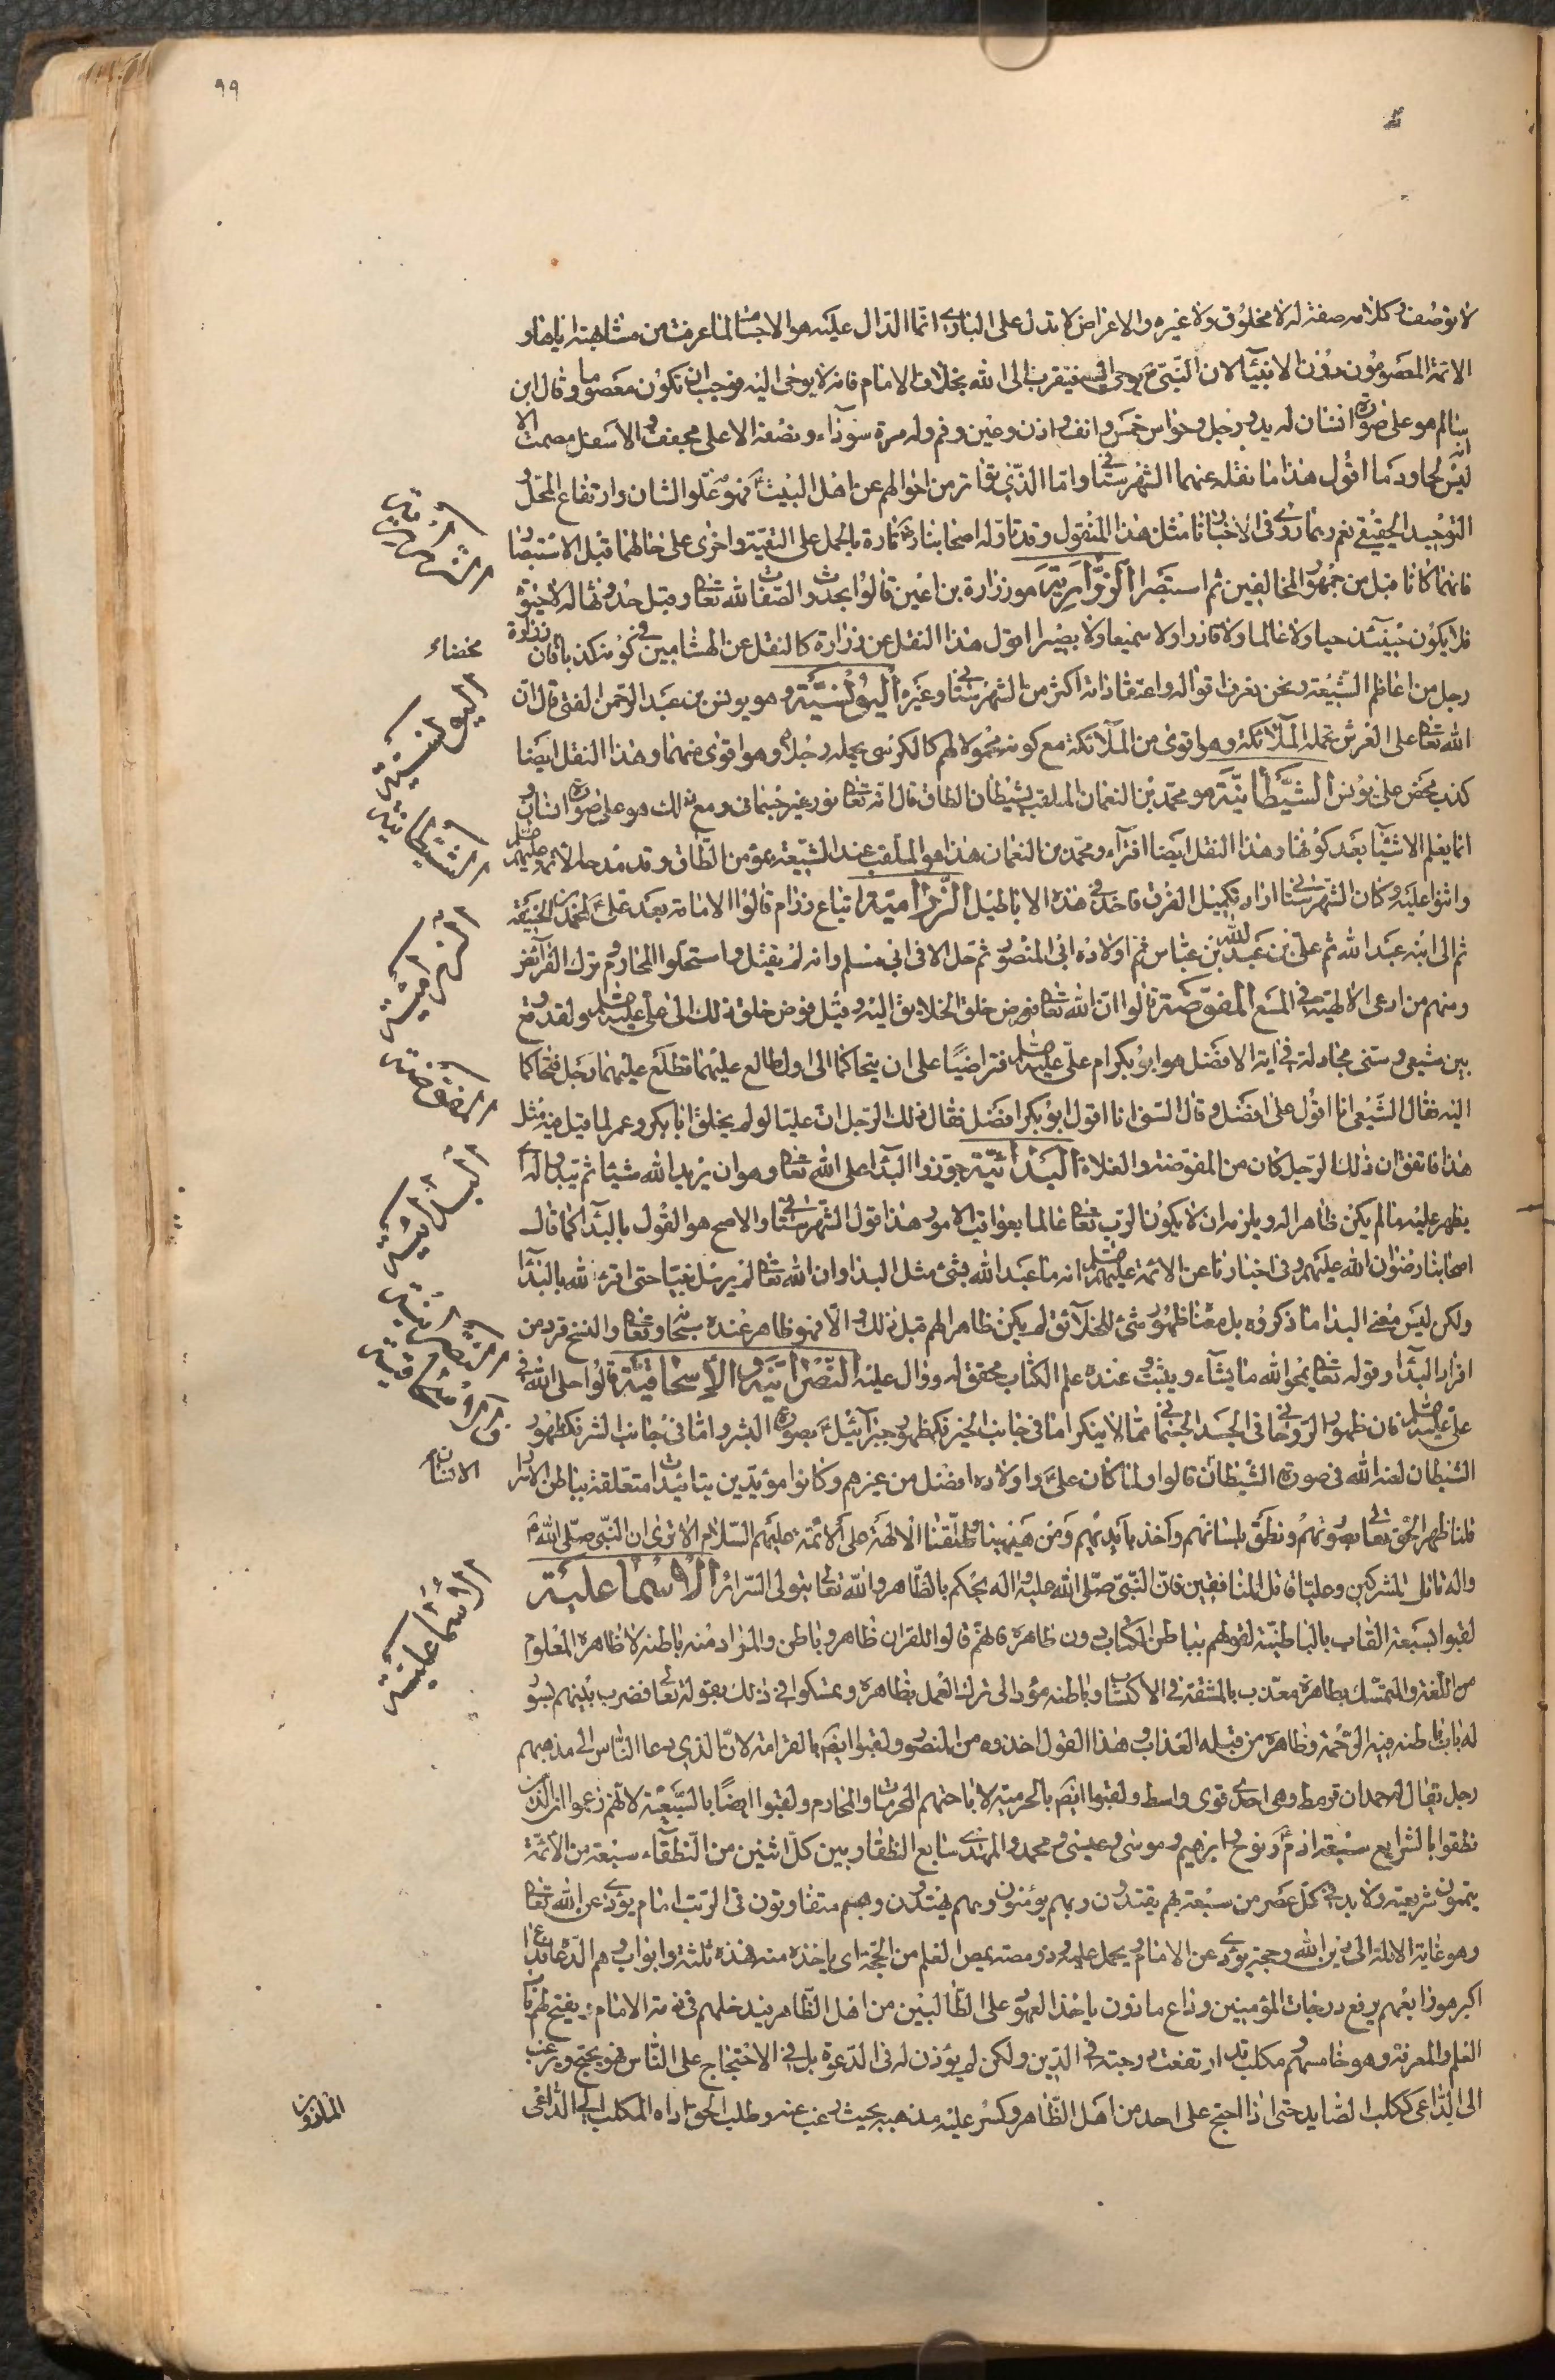 ٩٩
لا توصف وكلامه صفة له لا مخلوق ولا غيره والاعراض لا تدل على الباري انما الدال عليه هو الاجسام لما عرفت من مشابهته اياها و
الائمة المعصومون دون الانبياء لان النبي يوحى اليه فيتقرب الى الله بخلاف الامام فانه لا يوحى اليه فوجب ان تكون معصوما وقال ابن
سالم هو على صورة انسان له يد ورجل وحواس خمس وانف واذن وعين وفم وله مرة سوداء ونصفه الاعلى مجوف والاسفل مصمت الا
انه ليس لحما ودما اقول هذا ما نقله عنهما الشهرستاني واما الذي تواتر من احوالهم عن اهل البيت فهو علو الشان وارتفاع المحل و
التوحيد الحقيقي نعم ربما روى في الاخبار مثل هذا المنقول وقد تاوله اصحابنا تارة بالحمل على التقية واخرى على حالهما قبل الاستبصار
فانهما كانا قبل من جمهور المخالفين ثم استبصرا الزرارية هو زرارة بن اعين قالوا بحدوث الصفات لله تعالى وقبل حدوثها له لا حيوة
فلا يكون حينئذ حيا ولا عالما ولا قادرا ولا سميعا ولا بصيرا اقول هذا النقل عن زرارة كالنقل عن الهشامين في كونه كذبا فان زرارة
رجل من اعاظم الشيعة ونحن نعرف اقواله واعتقاداته اكثر من الشهرستاني وغيره اليونسية هو يونس بن عبد الرحمن القمي قال ان
الله تعالى على العرش تحمله الملائكة وهو اقوى من الملائكة مع كونه محمولا لهم كالكرسي يحمله رجلاه وهو اقوى منهما وهذا النقل ايضا
كذب محض على يونس الشيطانية هو محمد بن النعمان الملقب بشيطان الطاق قال انه تعالى نور غير جسماني ومع ذلك هو على صورة انسان و
انما يعلم الاشياء بعد كونها وهذا النقل ايضا افتراء ومحمد بن النعمان هذا هو الملقب عند الشيعة بمؤمن الطاق وقد مدحه الائمة عليهم
واثنوا عليه وكان الشهرستاني اراد تكميل الفرق فاخذ في هذه الاباطيل الزرامية اتباع رزام قالوا الامامة بعد علي لمحمد بن الحنفية
ثم الى ابنه عبد الله ثم علي بن عبد الله بن عباس ثم اولاده الى المنصور ثم حل الاله في ابي مسلم وانه لم يقتل واستحلوا المحارم وترك الفرائض
ومنهم من ادعى الالهية في المقنع المفوضة قالوا ان الله تعالى فوض خلق الخلايق اليه وقيل فوض خلق ذلك الى علي عليه ولقد وقع
بين شيعي وسني مجادلة في انه الافضل هو ابو بكر ام علي عليه فتراضيا على ان يتحاكما الى اول طالع عليهما فطلع عليهما رجل فتحاكما
اليه فقال الشيعي انا اقول علي افضل وقال السني انا اقول ابو بكر افضل فقال ذلك الرجل ان عليا لو لم يخلق ابا بكر وعمر لما قيل فيه مثل
هذا فاتفق ان ذلك الرجل كان من المفوضة والغلاة البدائية جوزوا البداء على الله تعالى وهو ان يريد الله شيئا ثم يبدو له اي
يظهر عليه ما لم يكن ظاهرا له ويلزمه ان لا يكون الرب تعالى عالما بعواقب الامور هذا قول الشهرستاني والاصح هو القول بالبداء كما قال
اصحابنا رضوان الله عليهم وفي اخبارنا عن الائمة عليهم انه ما عبد الله بشئ مثل البدا وان الله تعالى لم يرسل نبيا حتى اقر لله بالبداء
ولكن ليس معنى البدا ما ذكروه بل معناه ظهور شئ للخلائق لم يكن ظاهرا لهم قبل ذلك والا فهو ظاهر عنده سبحانه وتعالى والنسخ فرد من
افراد البداء وقوله تعالى يمحوا الله ما يشاء ويثبت وعنده علم الكتاب محقق له ودال عليه النصرانية والاسحاقية قالوا حل الله في
علي عليه فان ظهور الروحاني في الجسد الجسماني مما لا ينكر اما في جانب الخير فكظهور جبرائيل بصورة البشر واما في جانب الشر فكظهور
الشيطان لعنه الله في صورة الشيطان قالوا ولما كان علي واولاده افضل من غيرهم وكانوا مؤيدين بتائيدات متعلقة بباطن الاسرار
قلنا ظهر الحق تعالى بصورتهم ونطق بلسانهم واخذ بايديهم ومن هيهنا اطلقنا الالهة على الائمة عليهم السلام الا ترى ان النبي صلى الله
واله قاتل المشركين وعليا قاتل المنافقين فان النبي صلى الله عليه واله يحكم بالظاهر والله تعالى يتولى السرائر الاسماعلية
لقبوا بسبعة القاب بالباطنية لقولهم بباطن الكتاب دون ظاهره فانهم قالوا للقران ظاهر وباطن والمراد منه باطنه لا ظاهره المعلوم
من اللغة والمتمسك بظاهره معذب بالمشقة في الاكتساب وباطنه مؤد الى ترك العمل بظاهره وتمسكوا في ذلك بقوله تعالى فضرب بينهم بسور
له باب باطنه فيه الرحمة وظاهره من قبله العذاب وهذا القول اخذوه من المنصورية ولقبوا ايضا بالقرامطة لان الذي دعا الناس الى مذهبهم
رجل يقال له حمدان قرمط وهي احدى قرى واسط ولقبوا ايضا بالحرمية لاباحتهم الحرمات والمحارم ولقبوا ايضا بالسبعية لانهم زعموا ان الذين
نطقوا بالشرايع سبعة ادم ونوح وابرهيم وموسى وعيسى ومحمد والمهدي سابع النطقاء وبين كل اثنين من النطقاء سبعة من الائمة
يتمون شريعته ولا بد في كل عصر من سبعة بهم يقتدون وبهم يؤمنون وبهم يهتدون وهم متفاوتون في الرتب امام يؤدي عن الله تعالى
وهو غاية الادلة الى دين الله وحجة يؤدي عن الامام ويحمل علمه وذو مصة يمص العلم من الحجة اي ياخذه منه فهذه ثلثة وابواب وهم الدعاة
اكبر هو رابعهم يرفع درجات المؤمنين وداع ماذون ياخذ العهود على الطالبين من اهل الظاهر فيدخلهم في ذمة الامام ويفتح لهم باب
العلم والمعرفة وهو خامسهم ومكلب قد ارتفعت درجته في الدين ولكن لم يؤذن له في الدعوة بل في الاحتجاج على الناس فهو يحتج ويرغب
الى الداعي ككلب الصايد حتى اذا احتج على احد من اهل الظاهر وكسر عليه مذهبه بحيث رغب عنه وطلب الحق اداه المكلب الى الداعي
محضاء
اليونسية
الشيطانية
الزرامية
المفوضة
البدائية
النصرانية
والاسحاقية
الانسان
الاسماعلية
الماذون